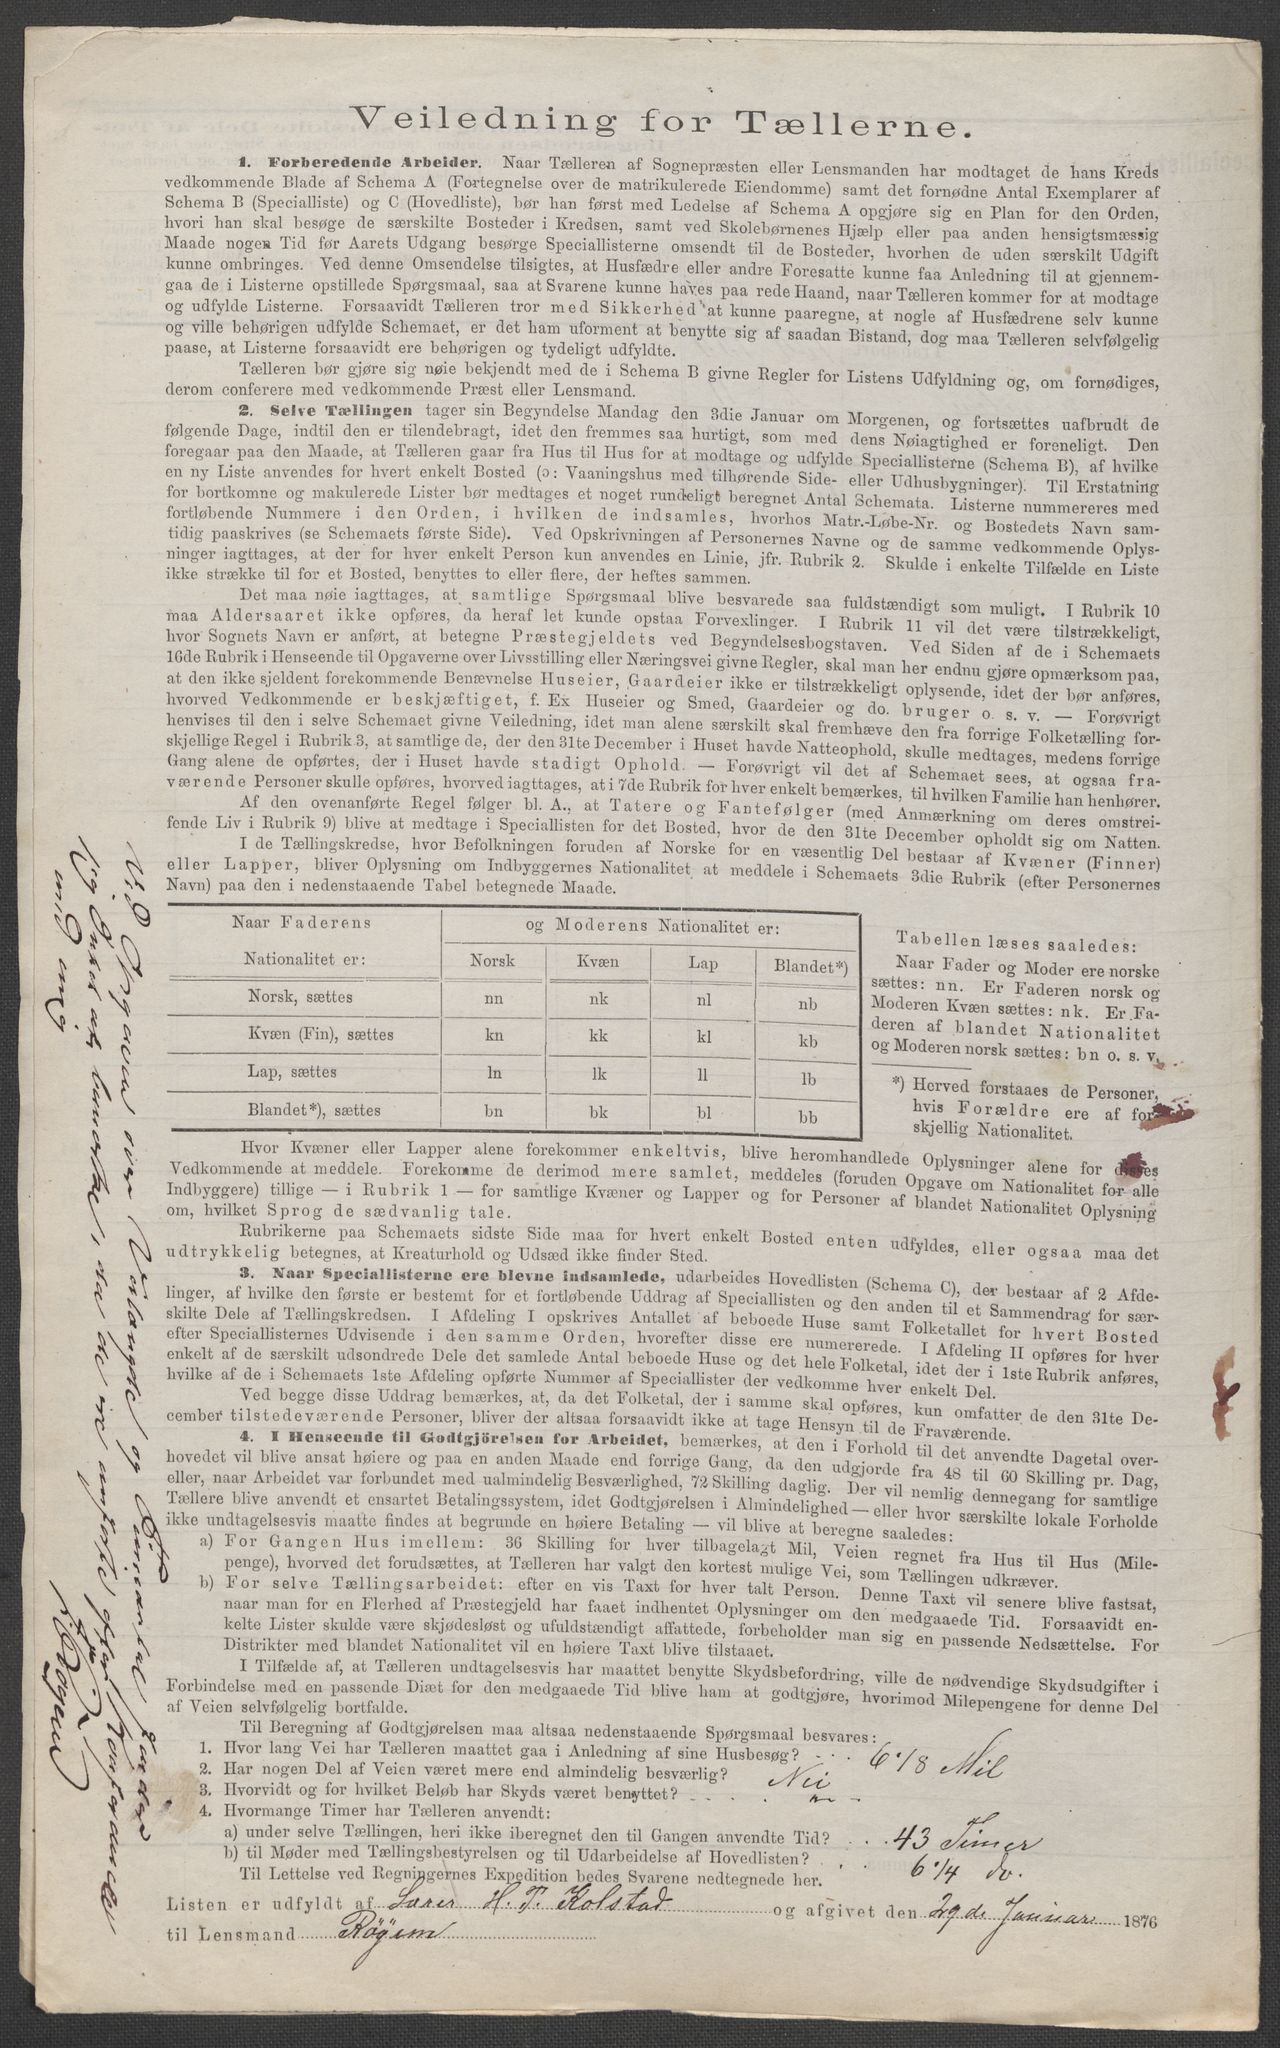 Veiledning for Tællerne.
1. Forberedende Arbeider. Naar Tælleren af Sognepræsten eller Lensmanden har modtaget de hans Kreds
vedkommende Blade af Schema A (Fortegnelse over de matrikulerede Eiendomme) samt det fornødne Antal Exemplarer af
Schema B (Specialliste) og C (Hovedliste), bør han først med Ledelse af Schema A opgjøre sig en Plan for den Orden,
hvori han skal besøge de særskilte Bosteder i Kredsen, samt ved Skolebørnenes Hjælp eller paa anden hensigtsmæssig
Maade nogen Tid før Aarets Udgang besørge Speciallisterne omsendt til de Bosteder, hvorhen de uden særskilt Udgift
kunne ombringes. Ved denne Omsendelse tilsigtes, at Husfædre eller andre Foresatte kunne faa Anledning til at gjennem-
gaa de i Listerne opstillede Spørgsmaal, saa at Svarene kunne haves paa rede Haand, naar Tælleren kommer for at modtage
og udfylde Listerne. Forsaavidt Tælleren tror med Sikkerhed at kunne paaregne, at nogle af Husfædrene selv kunne
og ville behørigen udfylde Schemaet, er det ham uforment at benytte sig af saadan Bistand, dog maa Tælleren selvfølgelig
paase, at Listerne forsaavidt ere behørigen og tydeligt udfyldte.
Tælleren bør gjøre sig nøie bekjendt med de i Schema B givne Regler for Listens Udfyldning og, om fornødiges,
derom conferere med vedkommende Præst eller Lensmand.
2. Selve Tællingen tager sin Begyndelse Mandag den 3die Januar om Morgenen, og fortsættes uafbrudt de
følgende Dage, indtil den er tilendebragt, idet den fremmes saa hurtigt, som med dens Nøiagtighed er foreneligt. Den
foregaar paa den Maade, at Tælleren gaar fra Hus til Hus for at modtage og udfylde Speciallisterne (Schema B), af hvilke
en ny Liste anvendes for hvert enkelt Bosted (ɔ: Vaaningshus med tilhørende Side- eller Udhusbygninger). Til Erstatning
for bortkomne og makulerede Lister bør medtages et noget rundeligt beregnet Antal Schemata. Listerne nummereres med
fortløbende Nummere i den Orden, i hvilken de indsamles, hvorhos Matr.-Løbe-Nr. og Bostedets Navn sam-
tidig paaskrives (se Schemaets første Side). Ved Opskrivningen af Personernes Navne og de samme vedkommende Oplys-
ninger iagttages, at der for hver enkelt Person kun anvendes en Linie, jfr. Rubrik 2. Skulde i enkelte Tilfælde en Liste
ikke strække til for et Bosted, benyttes to eller flere, der heftes sammen.
Det maa nøie iagttages, at samtlige Spørgsmaal blive besvarede saa fuldstændigt som muligt. I Rubrik 10
maa Aldersaaret ikke opføres, da heraf let kunde opstaa Forvexlinger. I Rubrik 11 vil det være tilstrækkeligt,
hvor Sognets Navn er anført, at betegne Præstegjeldets ved Begyndelsesbogstaven. Ved Siden af de i Schemaets
16de Rubrik i Henseende til Opgaverne over Livsstilling eller Næringsvei givne Regler, skal man her endnu gjøre opmærksom paa,
at den ikke sjeldent forekommende Benævnelse Huseier, Gaardeier ikke er tilstrækkeligt oplysende, idet der bør anføres,
hvorved Vedkommende er beskjæftiget, f. Ex Huseier og Smed, Gaardeier og do. bruger o. s. v. — Forøvrigt
henvises til den i selve Schemaet givne Veiledning, idet man alene særskilt skal fremhæve den fra forrige Folketælling for-
skjellige Regel i Rubrik 3, at samtlige de, der den 31te December i Huset havde Natteophold, skulle medtages, medens forrige
Gang alene de opførtes, der i Huset havde stadigt Ophold. — Forøvrigt vil det af Schemaet sees, at ogsaa fra-
værende Personer skulle opføres, hvorved iagttages, at i 7de Rubrik for hver enkelt bemærkes, til hvilken Familie han henhører.
Af den ovenanførte Regel følger bl. A., at Tatere og Fantefølger (med Anmærkning om deres omstrei-
fende Liv i Rubrik 9) blive at medtage i Speciallisten for det Bosted, hvor de den 31te December opholdt sig om Natten.
I de Tællingskredse, hvor Befolkningen foruden af Norske for en væsentlig Del bestaar af Kvæner (Finner)
eller Lapper, bliver Oplysning om Indbyggernes Nationalitet at meddele i Schemaets 3die Rubrik (efter Personernes
Navn) paa den i nedenstaaende Tabel betegnede Maade.
Naar Faderens og Moderens Nationalitet er:
Nationalitet er: Norsk Kvæn Lap Blandet*)
Norsk, sættes nn nk nl nb
Kvæn (Fin), sættes kn kk kl kb
Lap, sættes ln lk ll lb
Blandet*), sættes bn bk bl bb
Tabellen læses saaledes:
Naar Fader og Moder ere norske
sættes: nn. Er Faderen norsk og
Moderen Kvæn sættes: nk. Er Fa-
deren af blandet Nationalitet
og Moderen norsk sættes: bn o. s. v.
*) Herved forstaaes de Personer,
hvis Forældre ere af for-
skjellig Nationalitet.
Hvor Kvæner eller Lapper alene forekommer enkeltvis, blive heromhandlede Oplysninger alene for disses
Vedkommende at meddele. Forekomme de derimod mere samlet, meddeles (foruden Opgave om Nationalitet for alle
Indbyggere) tillige — i Rubrik 1 — for samtlige Kvæner og Lapper og for Personer af blandet Nationalitet Oplysning
om, hvilket Sprog de sædvanlig tale.
Rubrikerne paa Schemaets sidste Side maa for hvert enkelt Bosted enten udfyldes, eller ogsaa maa det
udtrykkelig betegnes, at Kreaturhold og Udsæd ikke finder Sted.
3. Naar Speciallisterne ere blevne indsamlede, udarbeides Hovedlisten (Schema C), der bestaar af 2 Afde-
linger, af hvilke den første er bestemt for et fortløbende Uddrag af Speciallisten og den anden til et Sammendrag for sær-
skilte Dele af Tællingskredsen. I Afdeling I opskrives Antallet af beboede Huse samt Folketallet for hvert Bosted
efter Speciallisternes Udvisende i den samme Orden, hvorefter disse ere numererede. I Afdeling II opføres for hver
enkelt af de særskilt udsondrede Dele det samlede Antal beboede Huse og det hele Folketal, idet der i 1ste Rubrik anføres,
hvilke af de i Schemaets 1ste Afdeling opførte Nummer af Speciallister der vedkomme hver enkelt Del.
Ved begge disse Uddrag bemærkes, at, da det Folketal, der i samme skal opføres, kun omfatter de den 31te De-
cember tilstedeværende Personer, bliver der altsaa forsaavidt ikke at tage Hensyn til de Fraværende.
4. I Henseende til Godtgjörelsen for Arbeidet, bemærkes, at den i Forhold til det anvendte Dagetal over-
hovedet vil blive ansat høiere og paa en anden Maade end forrige Gang, da den udgjorde fra 48 til 60 Skilling pr. Dag,
eller, naar Arbeidet var forbundet med ualmindelig Besværlighed, 72 Skilling daglig. Der vil nemlig dennegang for samtlige
Tællere blive anvendt et ensartet Betalingssystem, idet Godtgjørelsen i Almindelighed — eller hvor særskilte lokale Forholde
ikke undtagelsesvis maatte findes at begrunde en høiere Betaling — vil blive at beregne saaledes:
a) For Gangen Hus imellem: 36 Skilling for hver tilbagelagt Mil, Veien regnet fra Hus til Hus (Mile-
penge), hvorved det forudsættes, at Tælleren har valgt den kortest mulige Vei, som Tællingen udkræver.
b) For selve Tællingsarbeidet: efter en vis Taxt for hver talt Person. Denne Taxt vil senere blive fastsat,
naar man for en Flerhed af Præstegjeld har faaet indhentet Oplysninger om den medgaaede Tid. Forsaavidt en-
kelte Lister skulde være skjødesløst og ufuldstændigt affattede, forbeholder man sig en passende Nedsættelse. For
Distrikter med blandet Nationalitet vil en høiere Taxt blive tilstaaet.
I Tilfælde af, at Tælleren undtagelsesvis har maattet benytte Skydsbefordring, ville de nødvendige Skydsudgifter i
Forbindelse med en passende Diæt for den medgaaede Tid blive ham at godtgjøre, hvorimod Milepengene for denne Del
af Veien selvfølgelig bortfalde.
Til Beregning af Godtgjørelsen maa altsaa nedenstaaende Spørgsmaal besvares:
1. Hvor lang Vei har Tælleren maattet gaa i Anledning af sine Husbesøg? 6 1/8 Mil
2. Har nogen Del af Veien været mere end almindelig besværlig? Nei
3. Hvorvidt og for hvilket Beløb har Skyds været benyttet? "
4. Hvormange Timer har Tælleren anvendt:
a) under selve Tællingen, heri ikke iberegnet den til Gangen anvendte Tid? 43 Timer
b) til Møder med Tællingsbestyrelsen og til Udarbeidelse af Hovedlisten? 6 1/4 do.
Til Lettelse ved Regningernes Expedition bedes Svarene nedtegnede her.
Listen er udfyldt af Lærer H. P. Kolstad og afgivet den 29de Januar 1876
til Lensmand Røgem
Ved Opgaven over Veilængde og Timeantal finder
jeg Intet at bemærke, da de ere anførte efter Konference
med mig
Røgem